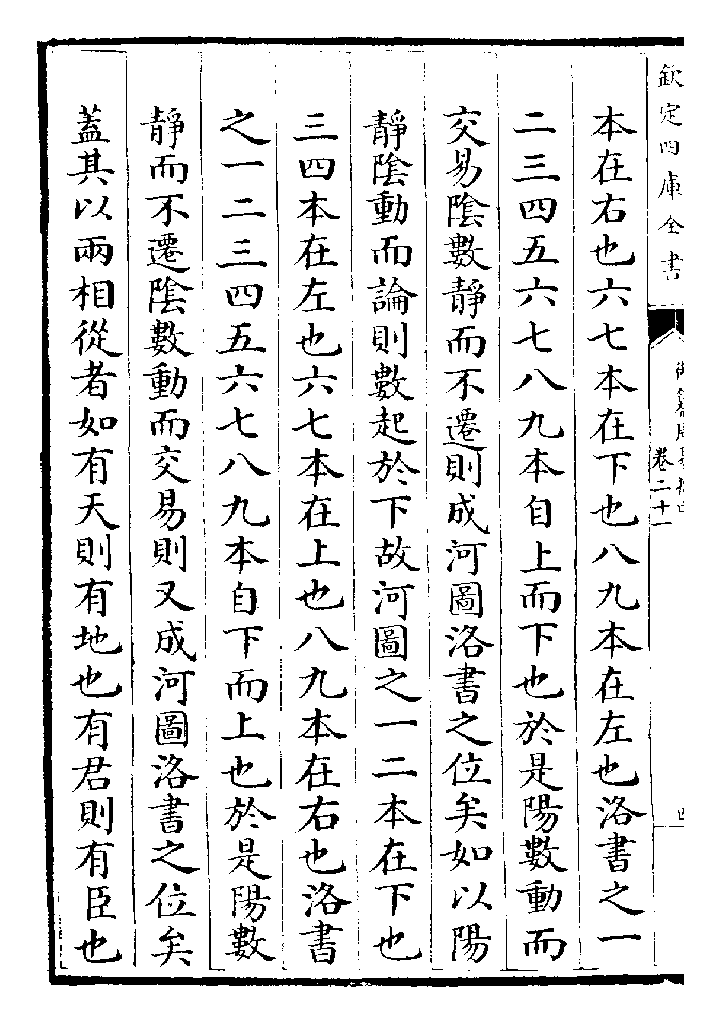 欽定四庫全書
卷二十一
本在右也六七本在下也八九本在左也洛書之一
二三四五六七八九本自上而下也於是陽數動而
交易陰數靜而不遷則成河圖洛書之位矣如以陽
靜陰動而論則數起於下故河圖之一二本在下也
三四本在左也六七本在上也八九本在右也洛書
之一二三四五六七八九本自下而上也於是陽數
靜而不遷陰數動而交易則又成河圖洛書之位矣
蓋其以兩相從者如有天則有地也有君則有臣也